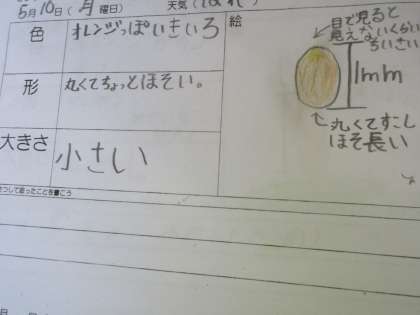 5月10日(月曜日)
天気(はれ)
色
オレンジっぽいきいろ
絵
形
丸くてちょっとほそい。
大きさ
小さい
目で見ると
見えないくらい
ちいさい
1mm
丸くてすこし
ほそ長い
さつして思ったことを書こう